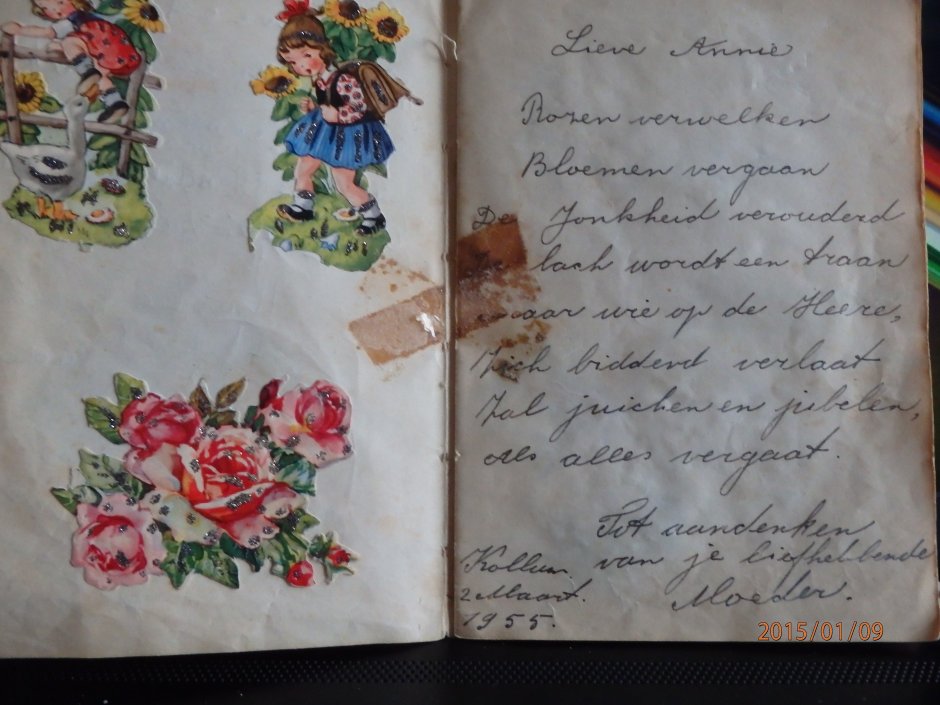 Lieve Annie
Rozen verwelken
Bloemen vergaan
De Jonkheid verouderd
lach wordt een traan
maar wie op de Heere,
Zich biddend verlaat
Zal juichen en jubelen,
als alles vergaat.
Tot aandenken
van je liefhebbende
Moeder.
Kollum
2 Maart.
1955.
2015/01/09